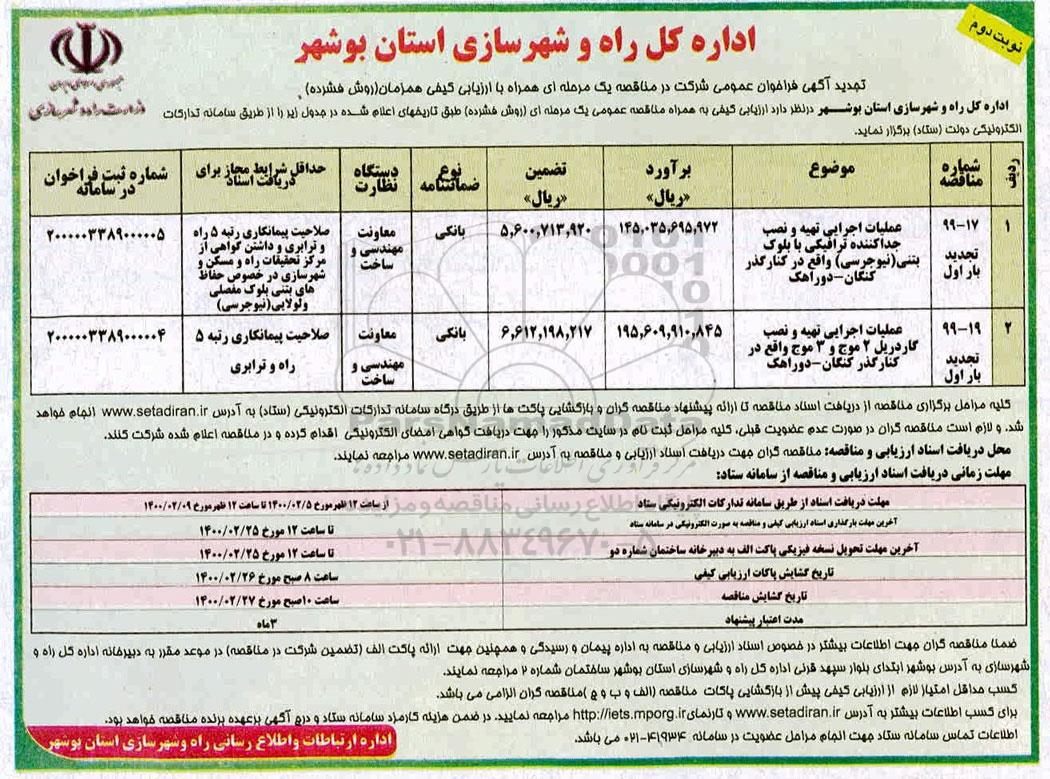 نوبت دوم
اداره کل راه و شهرسازی استان بوشهر
جمهوری اسلامی ایران
وزارت راه و شهرسازی
تجدید آگهی فراخوان عمومی شرکت در مناقصه یک مرحله ای همراه با ارزیابی کیفی همزمان(روش فشرده)
اداره کل راه و شهرسازی استان بوشهر درنظر دارد ارزیابی کیفی به همراه مناقصه عمومی یک مرحله ای (روش فشرده) طبق تاریخهای اعلام شده در جدول زیر را از طریق سامانه تدارکات
الکترونیکی دولت (ستاد) برگزار نماید.
ردیف | شماره مناقصه | موضوع | برآورد «ریال» | تضمین «ریال» | نوع ضمانتنامه | دستگاه نظارت | حداقل شرایط مجاز برای دریافت اسناد | شماره ثبت فراخوان در سامانه
۱ | ۹۹-۱۷ تجدید بار اول | عملیات اجرایی تهیه و نصب جداکننده ترافیکی با بلوک بتنی(نیوجرسی) واقع در کنارگذر کنگان-دوراهک | ۱۴۵,۰۳۵,۶۹۵,۹۷۲ | ۵,۶۰۰,۷۱۳,۹۲۰ | بانکی | معاونت مهندسی و ساخت | صلاحیت پیمانکاری رتبه ۵ راه و ترابری و داشتن گواهی از مرکز تحقیقات راه و مسکن و شهرسازی در خصوص حفاظ های بتنی بلوک مفصلی ولولایی(نیوجرسی) | ۲۰۰۰۰۰۳۳۸۹۰۰۰۰۰۵
۲ | ۹۹-۱۹ تجدید بار اول | عملیات اجرایی تهیه و نصب گاردریل ۲ موج و ۳ موج واقع در کنارگذر کنگان-دوراهک | ۱۹۵,۶۰۹,۹۱۰,۸۴۵ | ۶,۶۱۲,۱۹۸,۲۱۷ | بانکی | معاونت مهندسی و ساخت | صلاحیت پیمانکاری رتبه ۵ راه و ترابری | ۲۰۰۰۰۰۳۳۸۹۰۰۰۰۰۴
کلیه مراحل برگزاری مناقصه از دریافت اسناد مناقصه تا ارائه پیشنهاد مناقصه گران و بازگشایی پاکت ها از طریق درگاه سامانه تدارکات الکترونیکی (ستاد) به آدرس www.setadiran.ir انجام خواهد
شد. و لازم است مناقصه گران در صورت عدم عضویت قبلی، کلیه مراحل ثبت نام در سایت مذکور را جهت دریافت گواهی امضای الکترونیکی اقدام کرده و در مناقصه اعلام شده شرکت کنند.
محل دریافت اسناد ارزیابی و مناقصه: مناقصه گران جهت دریافت اسناد ارزیابی و مناقصه به آدرس www.setadiran.ir مراجعه نمایند.
مهلت زمانی دریافت اسناد ارزیابی و مناقصه از سامانه ستاد:
مهلت دریافت اسناد از طریق سامانه تدارکات الکترونیکی ستاد | از ساعت ۱۲ ظهرمورخ ۱۴۰۰/۰۲/۵ تا ساعت ۱۲ ظهرمورخ ۱۴۰۰/۰۲/۰۹
آخرین مهلت بارگذاری اسناد ارزیابی کیفی و مناقصه به صورت الکترونیکی در سامانه ستاد | تا ساعت ۱۲ مورخ ۱۴۰۰/۰۲/۲۵
آخرین مهلت تحویل نسخه فیزیکی پاکت الف به دبیرخانه ساختمان شماره دو | تا ساعت ۱۲ مورخ ۱۴۰۰/۰۲/۲۵
تاریخ گشایش پاکات ارزیابی کیفی | ساعت ۸ صبح مورخ ۱۴۰۰/۰۲/۲۶
تاریخ گشایش مناقصه | ساعت ۱۰صبح مورخ ۱۴۰۰/۰۲/۲۷
مدت اعتبار پیشنهاد | ۳ماه
ضمنا مناقصه گران جهت اطلاعات بیشتر در خصوص اسناد ارزیابی و مناقصه به اداره پیمان و رسیدگی و همچنین جهت ارائه پاکت الف (تضمین شرکت در مناقصه) در موعد مقرر به دبیرخانه اداره کل راه و
شهرسازی به آدرس بوشهر ابتدای بلوار سپهبد قرنی اداره کل راه و شهرسازی استان بوشهر ساختمان شماره ۲ مراجعه نمایند.
کسب حداقل امتیاز لازم از ارزیابی کیفی پیش از بازگشایی پاکات مناقصه (الف و ب و ج )مناقصه گران الزامی می باشد.
برای کسب اطلاعات بیشتر به آدرس www.setadiran.ir و تارنمای http://iets.mporg.ir مراجعه نمایید. در ضمن هزینه کارمزد سامانه ستاد و درج آگهی برعهده برنده مناقصه خواهد بود.
اطلاعات تماس سامانه ستاد جهت انجام مراحل عضویت در سامانه ۰۲۱-۴۱۹۳۴ می باشد.
اداره ارتباطات واطلاع رسانی راه وشهرسازی استان بوشهر
۰۲۱-۸۸۳۴۹۶۷۰-۵